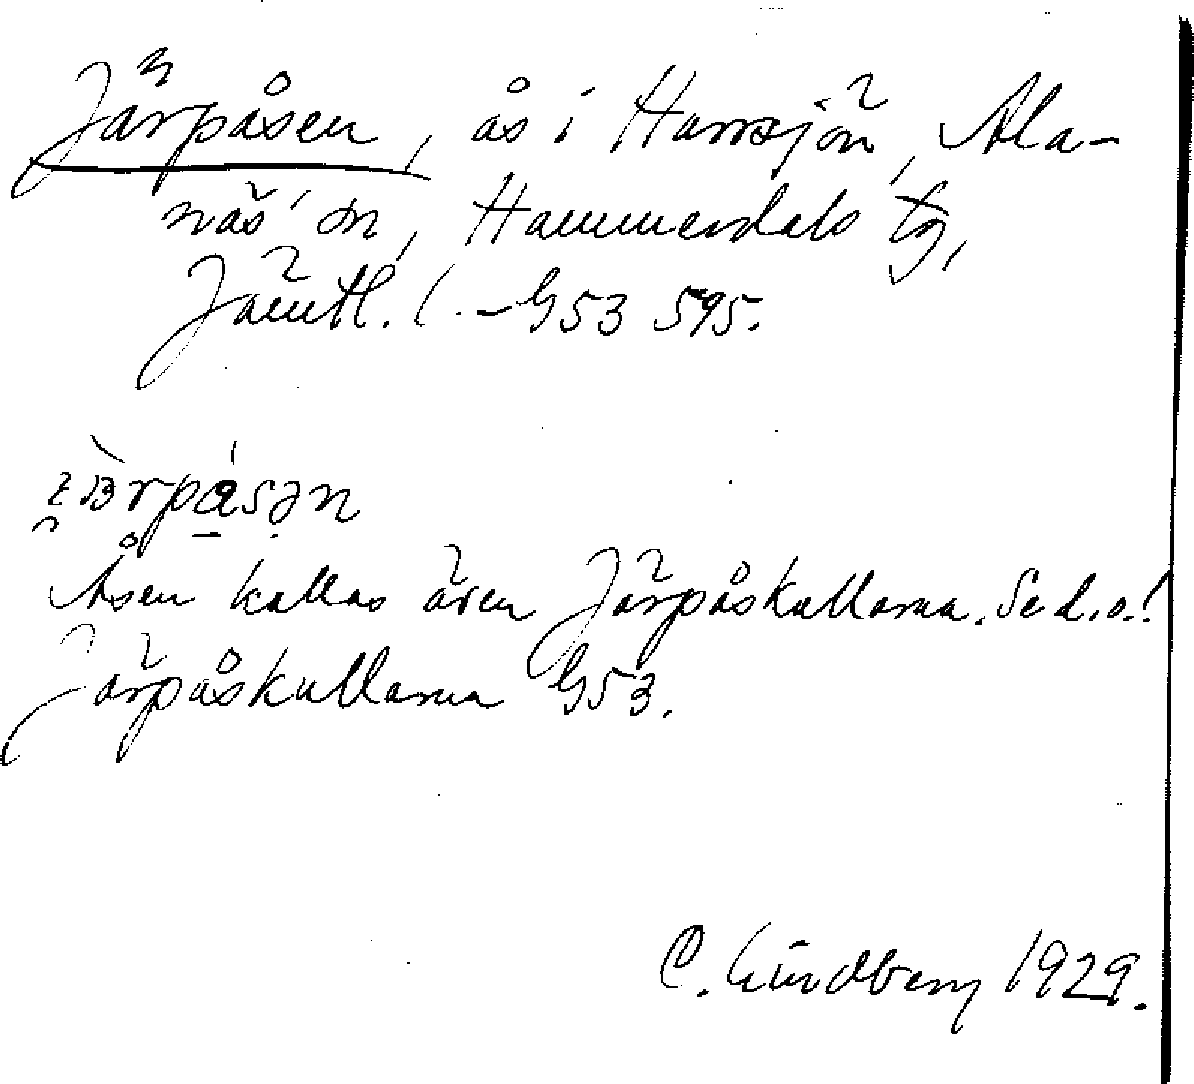 Järpåsen, ås i Harrsjön, Ala-
näs sn, Hammerdals tg,
Jämtl. l. G53 595.
Åsen kallas även Järpåskullarna. Se d.o.!
Järpåskullarna G53.
C. Lindberg 1929.